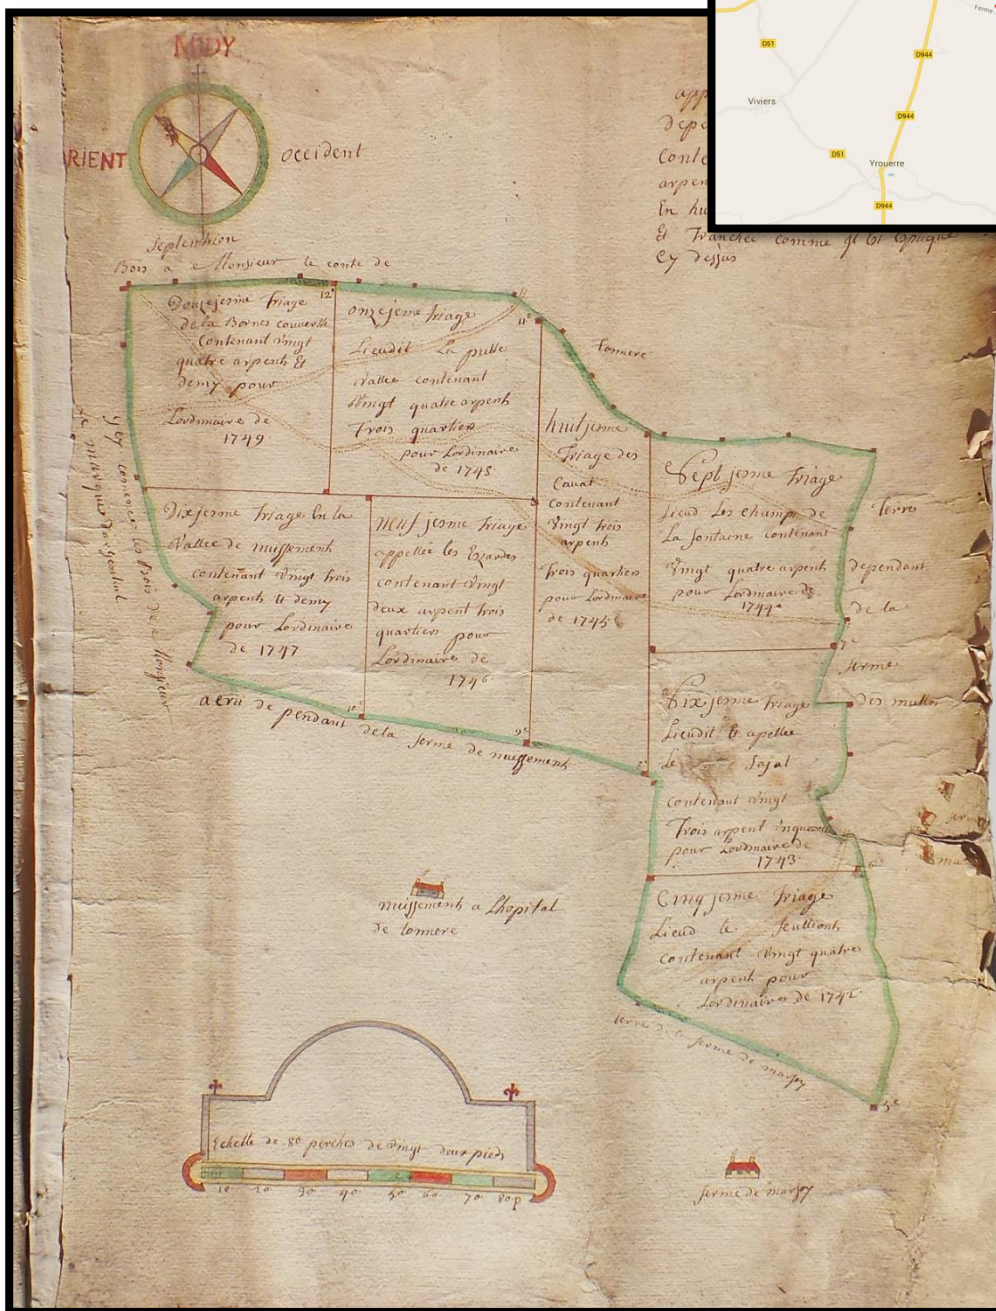 MIDY
RIENT
occident
Septentrion
D51
D944
Ferme
Viviers
D944
D51
Yrouerre
D944
app
depe
conte
arpen
En hu
Et Tranchee comme
Cy dessus
Bois a Monsieur le conte de
tonnere
Douzejesme triage
de la Bornes couverte
contenant vingt
quatre arpents Et
demy pour
Lordinaire de
1749
12e
onzejesme triage
Lieudit La
vallee contenant
vingt quatre arpents
Trois quartiers
pour Lordinaire
de 1748
11e
huitjesme
Triage des
Cauat
contenant
vingt trois
arpents
trois quartiers
pour Lordinaire
de 1745
Septjesme triage
Lieud Les champ de
La fontaine contenant
vingt quatre arpents
pour Lordinaire de
1744
Terre
dependant
de la
ferme
des
7e
Dixjesme triage En la
vallee de nuissement
contenant vingt trois
arpents Et demy
pour Lordinaire
de 1747
neufjesme triage
appellée les Essardes
contenant vingt
deux arpent trois
quartiers pour
Lordinaire de
1746
Sixjesme triage
Lieudit
Le
contenant vingt
Trois arpent
pour Lordinaire de
1743
6e
Cinqjesme triage
Lieud le
contenant vingt quatre
arpent pour
Lordinaire de 1742
5e
les Bois de Monsieur
le marquis
de pendant de la ferme de nuissement
10e
9e
nuissement a Lhopital
de tonnere
terre de la ferme de marsoy
ferme de marsoy
Echelle de 80 perches de vingt deux pieds
10 20 30 40 50 60 70 80p